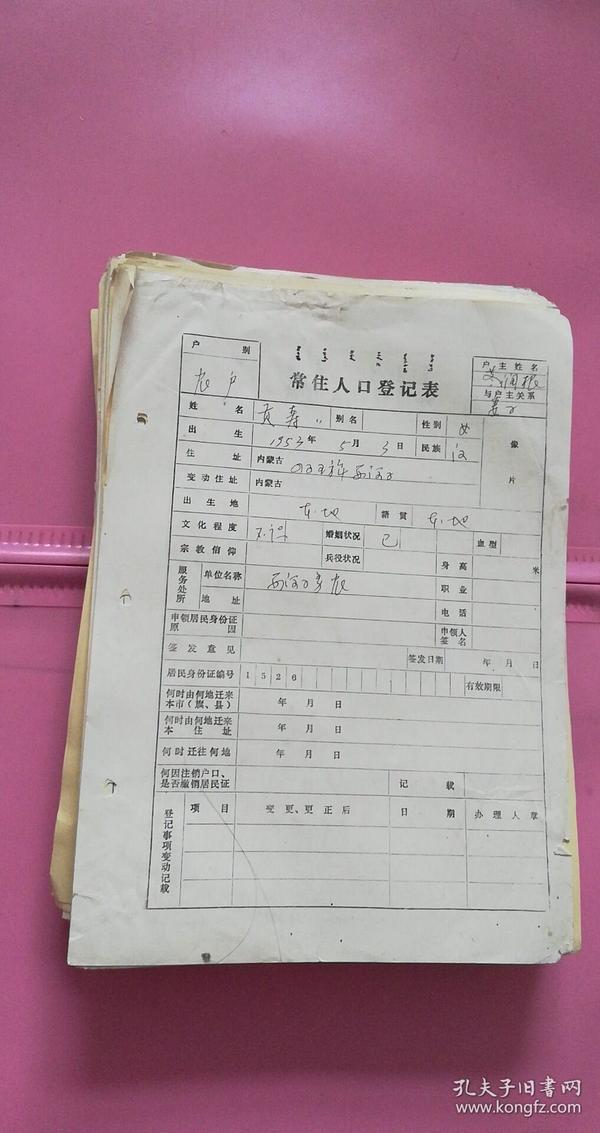 户 别
农户
常住人口登记表
户主姓名
与户主关系
妻子
姓 名
别名
性别 女
像
片
出 生 1953年 5月 3日 民族 汉
住 址 内蒙古
变动住址 内蒙古
出 生 地 本地 籍贯 本地
文化程度 不识 婚姻状况 已 血型
宗教信仰 兵役状况 身高 米
服务处所 单位名称 职业
地 址 电话
申领居民身份证原因 申领人签名
签发意见 签发日期 年 月 日
居民身份证编号 1526 有效期限
何时由何地迁来本市(旗、县) 年 月 日
何时由何地迁来本住址 年 月 日
何时迁往何地 年 月 日
何因注销户口、是否缴销居民证 记 载
登记事项变动记载 项 目 变更、更正后 日 期 办理人章
孔夫子旧书网
www.kongfz.com